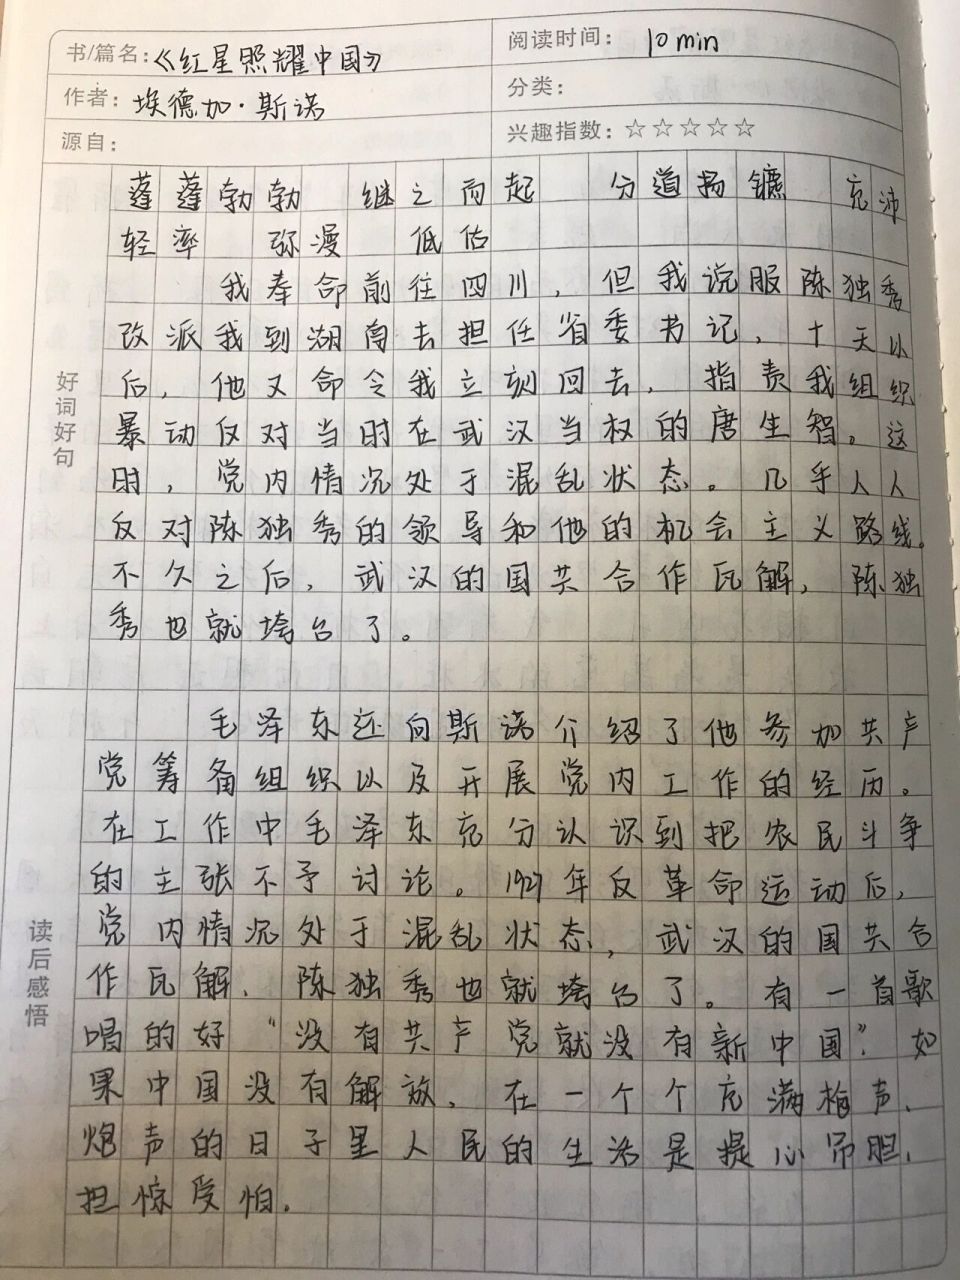 书/篇名：《红星照耀中国》
阅读时间： 10min
作者：埃德加·斯诺
分类：
源自：
兴趣指数：☆☆☆☆☆
好词好句
蓬蓬勃勃 继之而起 分道扬镳 充沛
轻率 弥漫 低估
我奉命前往四川，但我说服陈独秀
改派我到湖南去担任省委书记，十天以
后，他又命令我立刻回去，指责我组织
暴动反对当时在武汉当权的唐生智。这
时，党内情况处于混乱状态。几乎人人
反对陈独秀的领导和他的机会主义路线。
不久之后，武汉的国共合作瓦解，陈独
秀也就垮台了。
读后感悟
毛泽东还向斯诺介绍了他参加共产
党筹备组织以及开展党内工作的经历。
在工作中毛泽东充分认识到把农民斗争
的主张不予讨论。1927年反革命运动后，
党内情况处于混乱状态，武汉的国共合
作瓦解、陈独秀也就垮台了。有一首歌
唱的好“没有共产党就没有新中国”.如
果中国没有解放、在一个个充满枪声、
炮声的日子里人民的生活是提心吊胆、
担惊受怕。